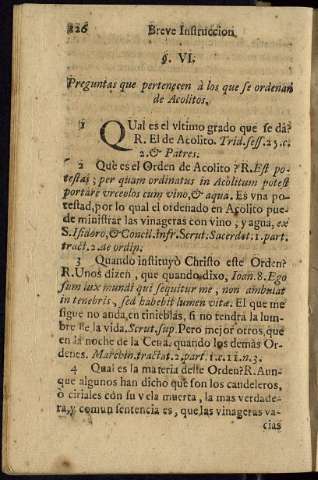 126 Breve Instruccion
§. VI.
Preguntas que pertenecen à los que se ordenan
de Acolitos.
1 QUal es el vltimo grado que se dà?
R. El de Acolito. Trid. sess. 23. c.
2. & Patres.
2 Què es el Orden de Acolito? R. Est po-
testas; per quam ordinatus in Acolitum potest
portare vrceolos cum vino, & aqua. Es vna po-
testad, por lo qual el ordenado en Acolito pue-
de ministrar las vinageras con vino, y agua, ex
S. Isidoro, & Concil. infr. Scrut. Sacerdot. 1. part.
tract. 2. de ordin.
3 Quando instituyò Christo este Orden?
R. Unos dizen, que quando dixo, Ioan. 8. Ego
sum lux mundi qui sequitur me, non ambulat
in tenebris, sed habebit lumen vitæ. El que me
sigue no anda en tinieblas, si no tendrà la lum-
bre de la vida. Scrut. sup. Pero mejor otros, que
en la noche de la Cena, quando los demàs Or-
denes. Marchin. tractat. 2. part. 1. c. 11. n. 3.
4 Qual es la materia deste Orden? R. Aun-
que algunos han dicho que son los candeleros,
ò ciriales con su vela muerta, la mas verdade-
ra, y comun sentencia es, que las vinageras va-
cias